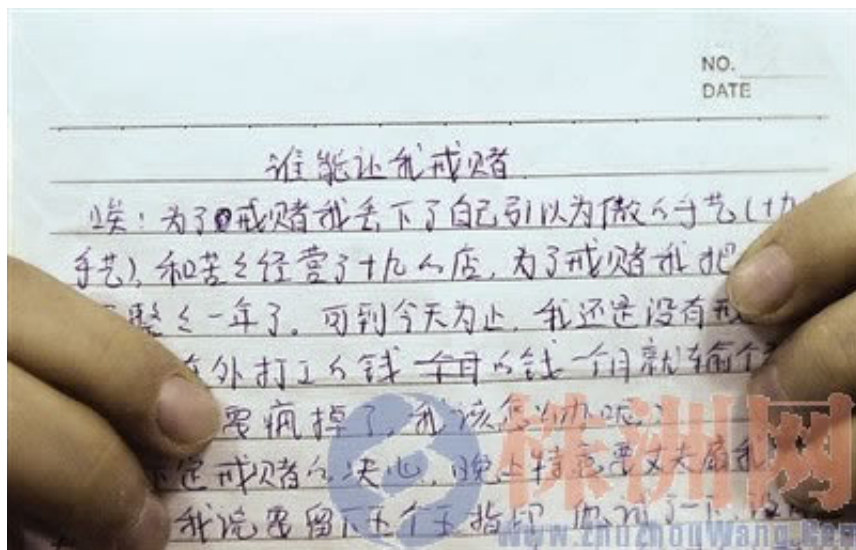 NO.
DATE
谁能让我戒赌
唉!为了戒赌我丢下了自己引以为傲的手艺(十九
手艺),和苦々经营了十九的店,为了戒赌我把
整々一年了。可到今天为止,我还是没有戒
在外打工的钱 一个月的钱 一个月就输个
要疯掉了,我该怎么办呢?
下定戒赌的决心,晚上特意要丈夫扇我
我说要留下五个手指印 他
株洲网
www.zhuzhouwang.com